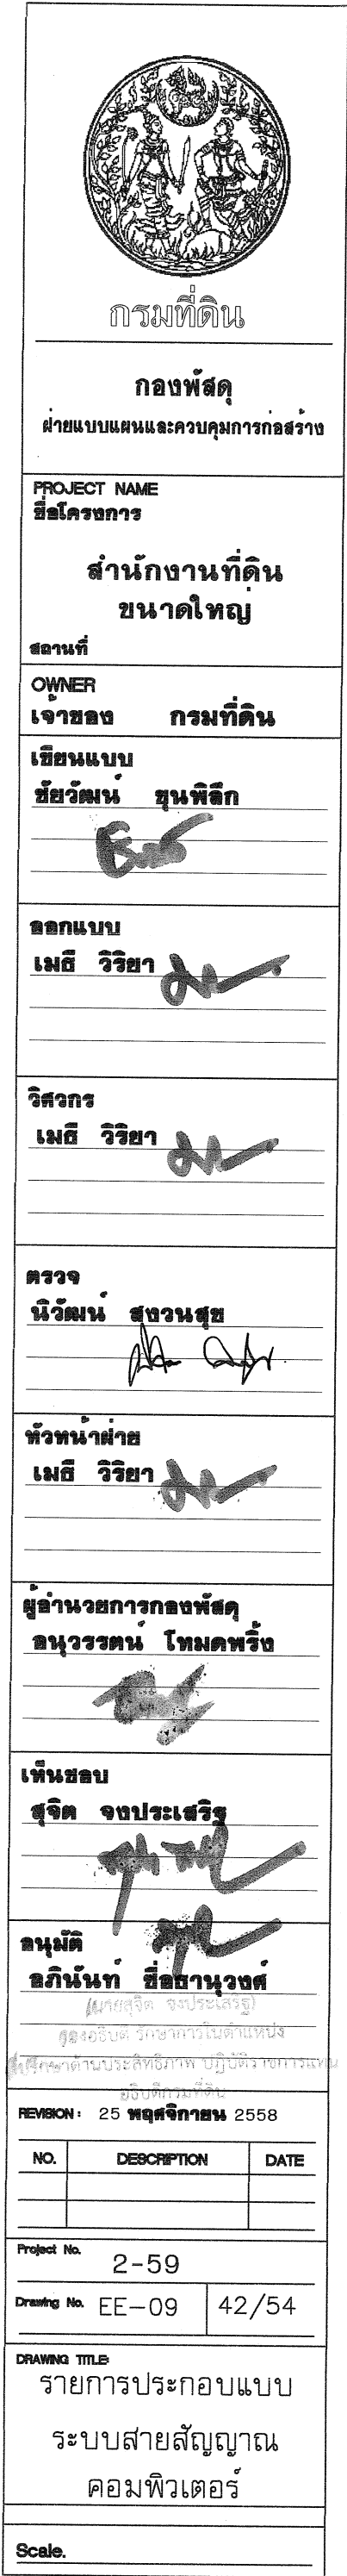 กรมที่ดิน
กองพัสดุ
ฝ่ายแบบแผนและควบคุมการก่อสร้าง
PROJECT NAME
ชื่อโครงการ
สำนักงานที่ดิน
ขนาดใหญ่
สถานที่
OWNER
เจ้าของ กรมที่ดิน
เขียนแบบ
ชัยวัฒน์ ขุนพิลึก
ออกแบบ
เมธี วิริยา
วิศวกร
เมธี วิริยา
ตรวจ
นิวัฒน์ สงวนสุข
หัวหน้าฝ่าย
เมธี วิริยา
ผู้อำนวยการกองพัสดุ
อนุวรรตน์ โหมดพริ้ง
เห็นชอบ
สุจิต จงประเสริฐ
อนุมัติ
อภินันท์ ซื่อธานุวงศ์
(นายสุจิต จงประเสริฐ)
รองอธิบดี รักษาการในตำแหน่ง
ที่ปรึกษาด้านประสิทธิภาพ ปฏิบัติราชการแทน
อธิบดีกรมที่ดิน
REVISION : 25 พฤศจิกายน 2558
NO. DESCRIPTION DATE
Project No. 2-59
Drawing No. EE-09 42/54
DRAWING TITLE:
รายการประกอบแบบ
ระบบสายสัญญาณ
คอมพิวเตอร์
Scale.